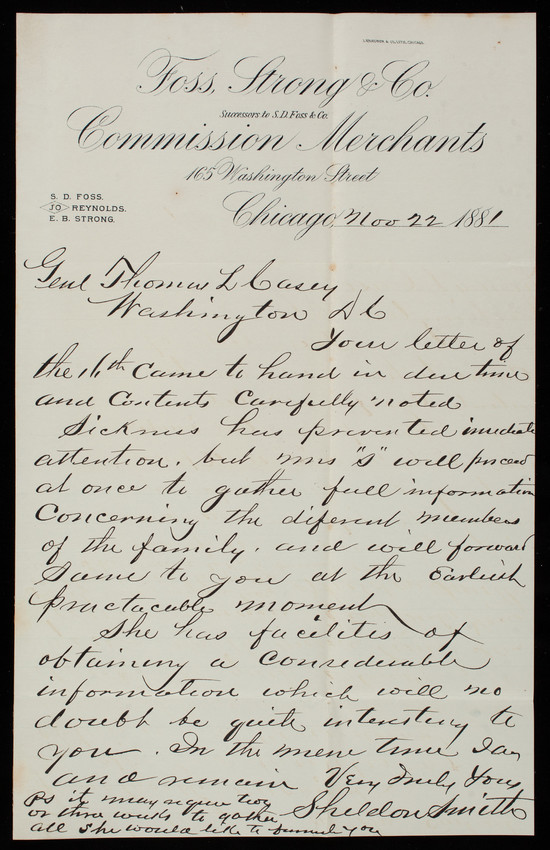 Foss, Strong & Co.
Successors to S. D. Foss & Co.
Commission Merchants
165 Washington Street
S. D. FOSS.
JO REYNOLDS.
E. B. STRONG.
Chicago, Nov 22 1881
Genl Thomas L Casey
Washington D C
Your letter of
the 16th Came to hand in due time
and Contents Carefully noted
Sickness has prevented imediate
attention. but Mrs "S" will proceed
at once to gather full information
Concerning the diferent members
of the family. and will forward
Same to you at the Earliest
practacable moment
She has facilities of
obtaining a Considerable
information which will no
doubt be quite interesting to
you. In the mene time I am
and remain Very Truly Yours
Sheldon Smith
PS it may require two
or three weeks to gather
all she would like to furnish you